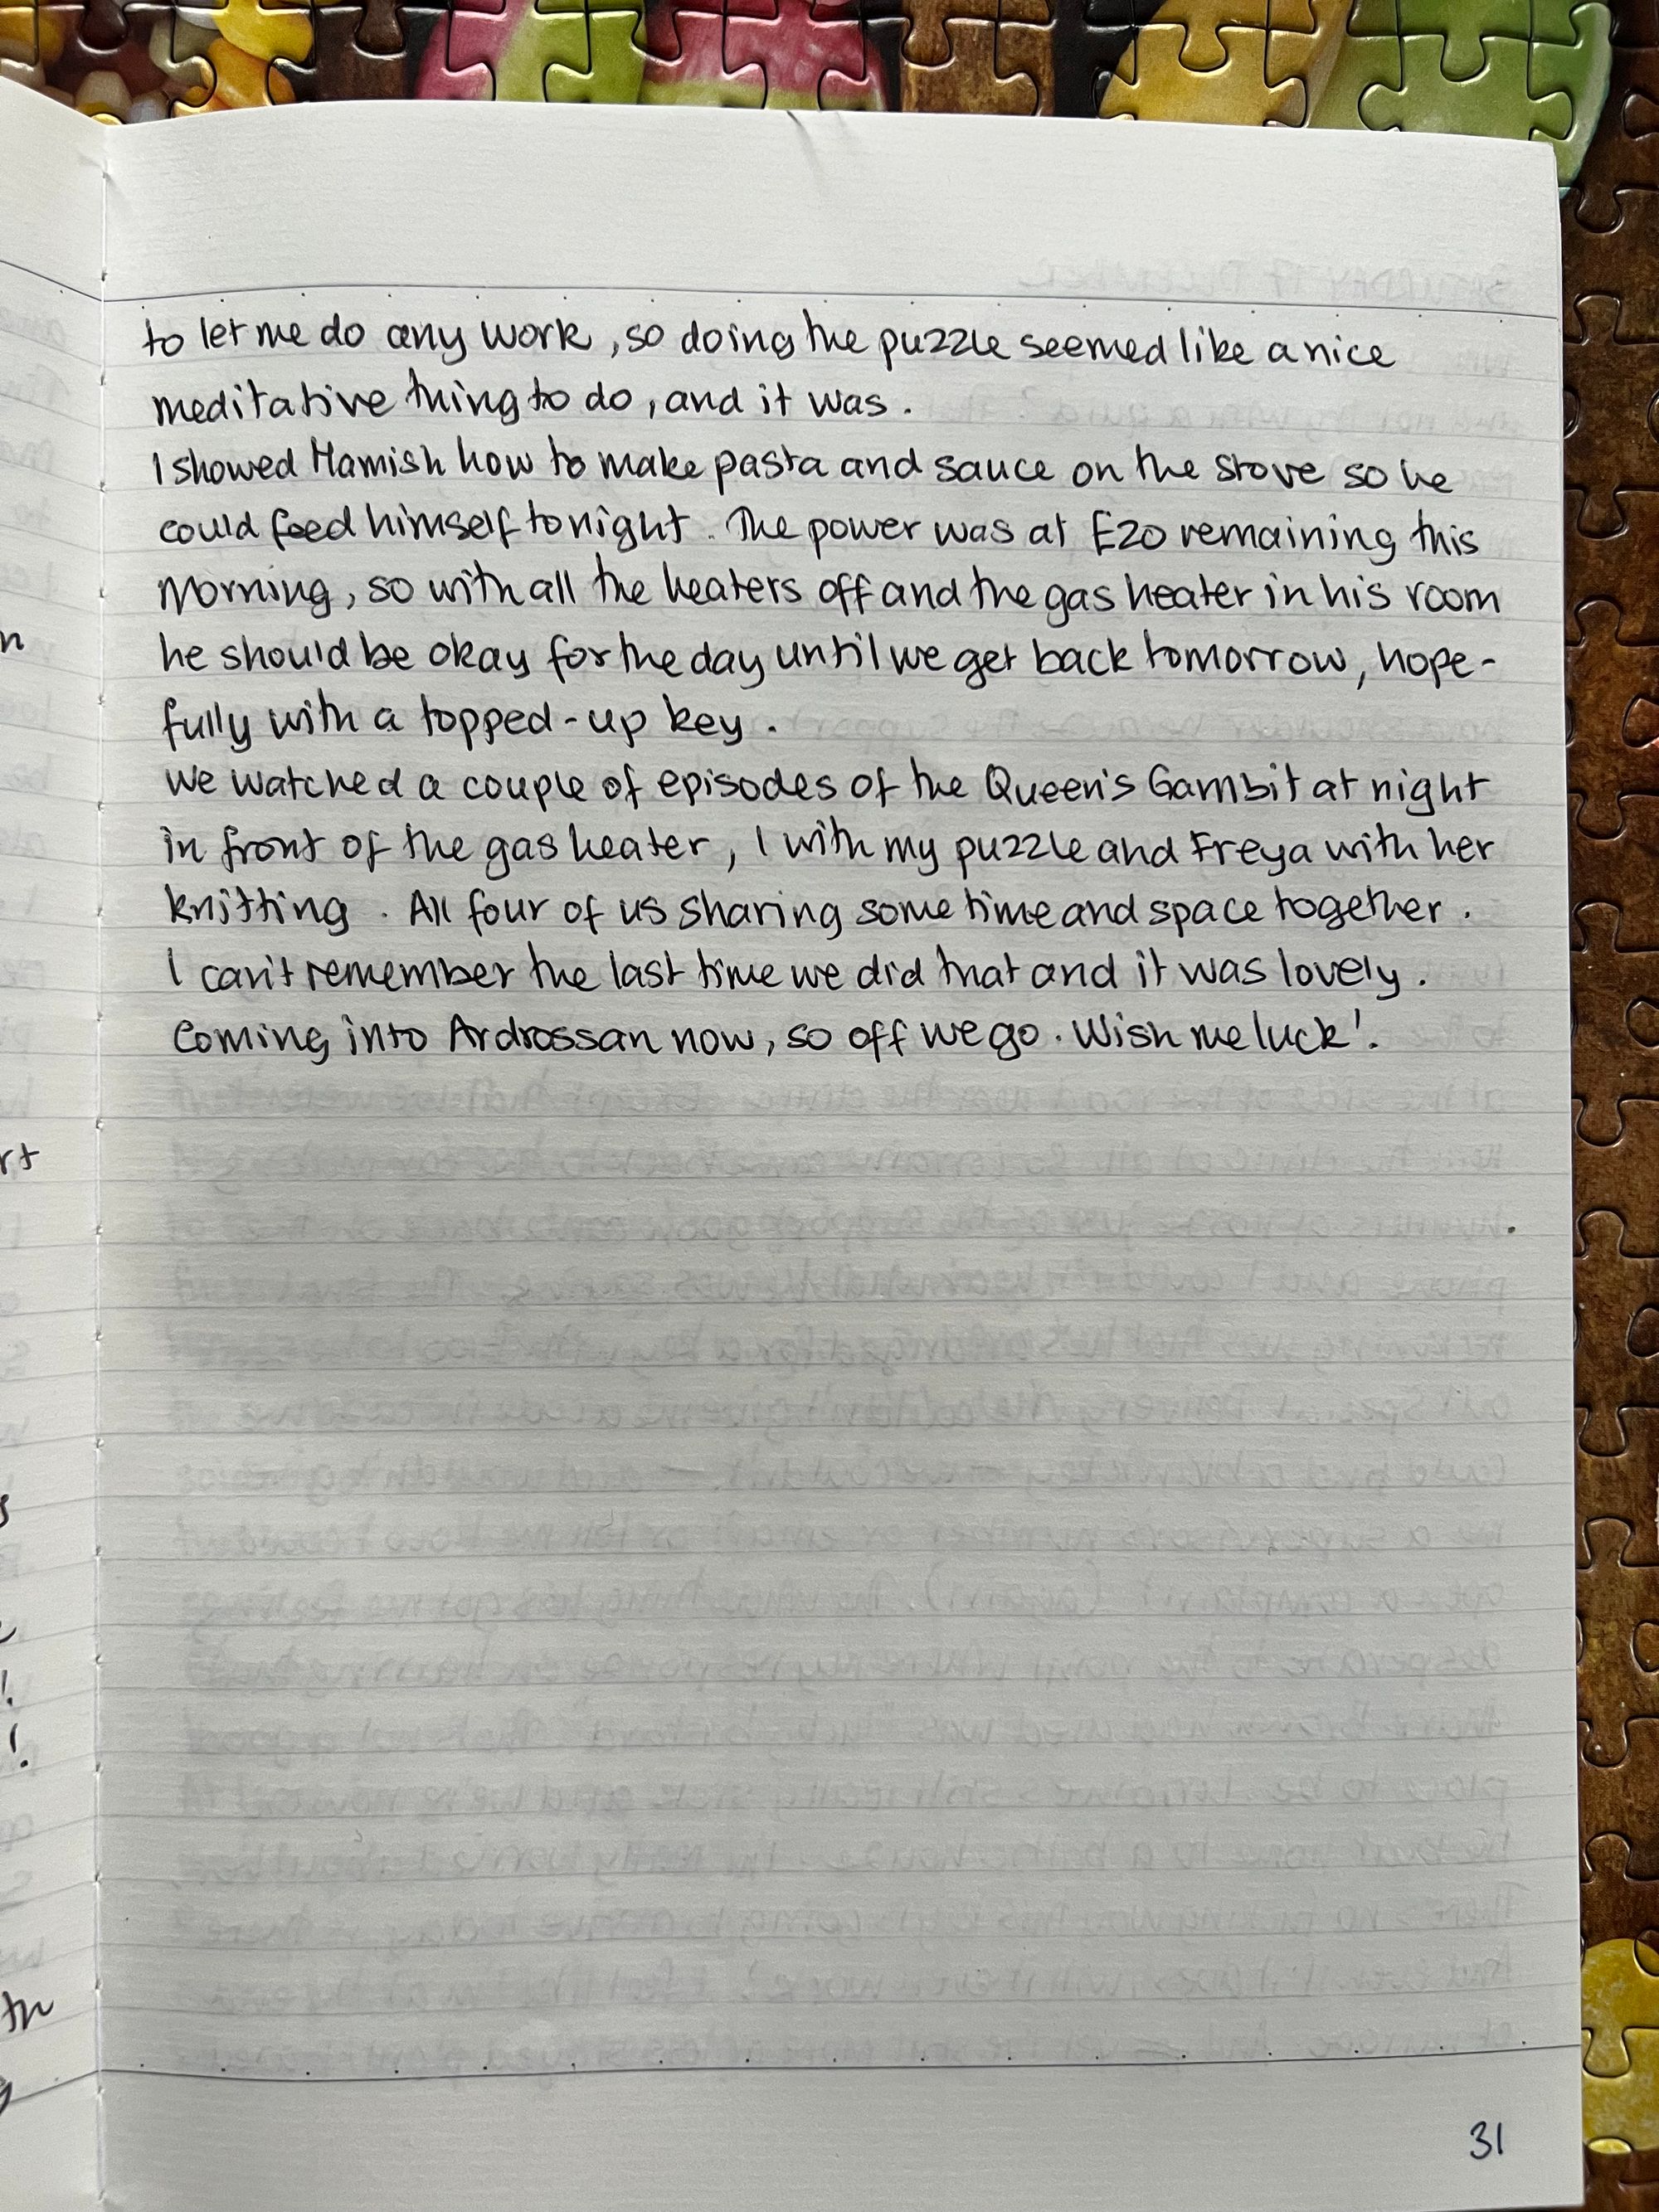 to let me do any work, so doing the puzzle seemed like a nice
meditative thing to do, and it was.
I showed Hamish how to make pasta and sauce on the stove so he
could feed himself tonight. The power was at £20 remaining this
morning, so with all the heaters off and the gas heater in his room
he should be okay for the day until we get back tomorrow, hope-
fully with a topped-up key.
We watched a couple of episodes of the Queen's Gambit at night
in front of the gas heater, I with my puzzle and Freya with her
knitting. All four of us sharing some time and space together.
I can't remember the last time we did that and it was lovely.
Coming into Ardrossan now, so off we go. Wish me luck!
31